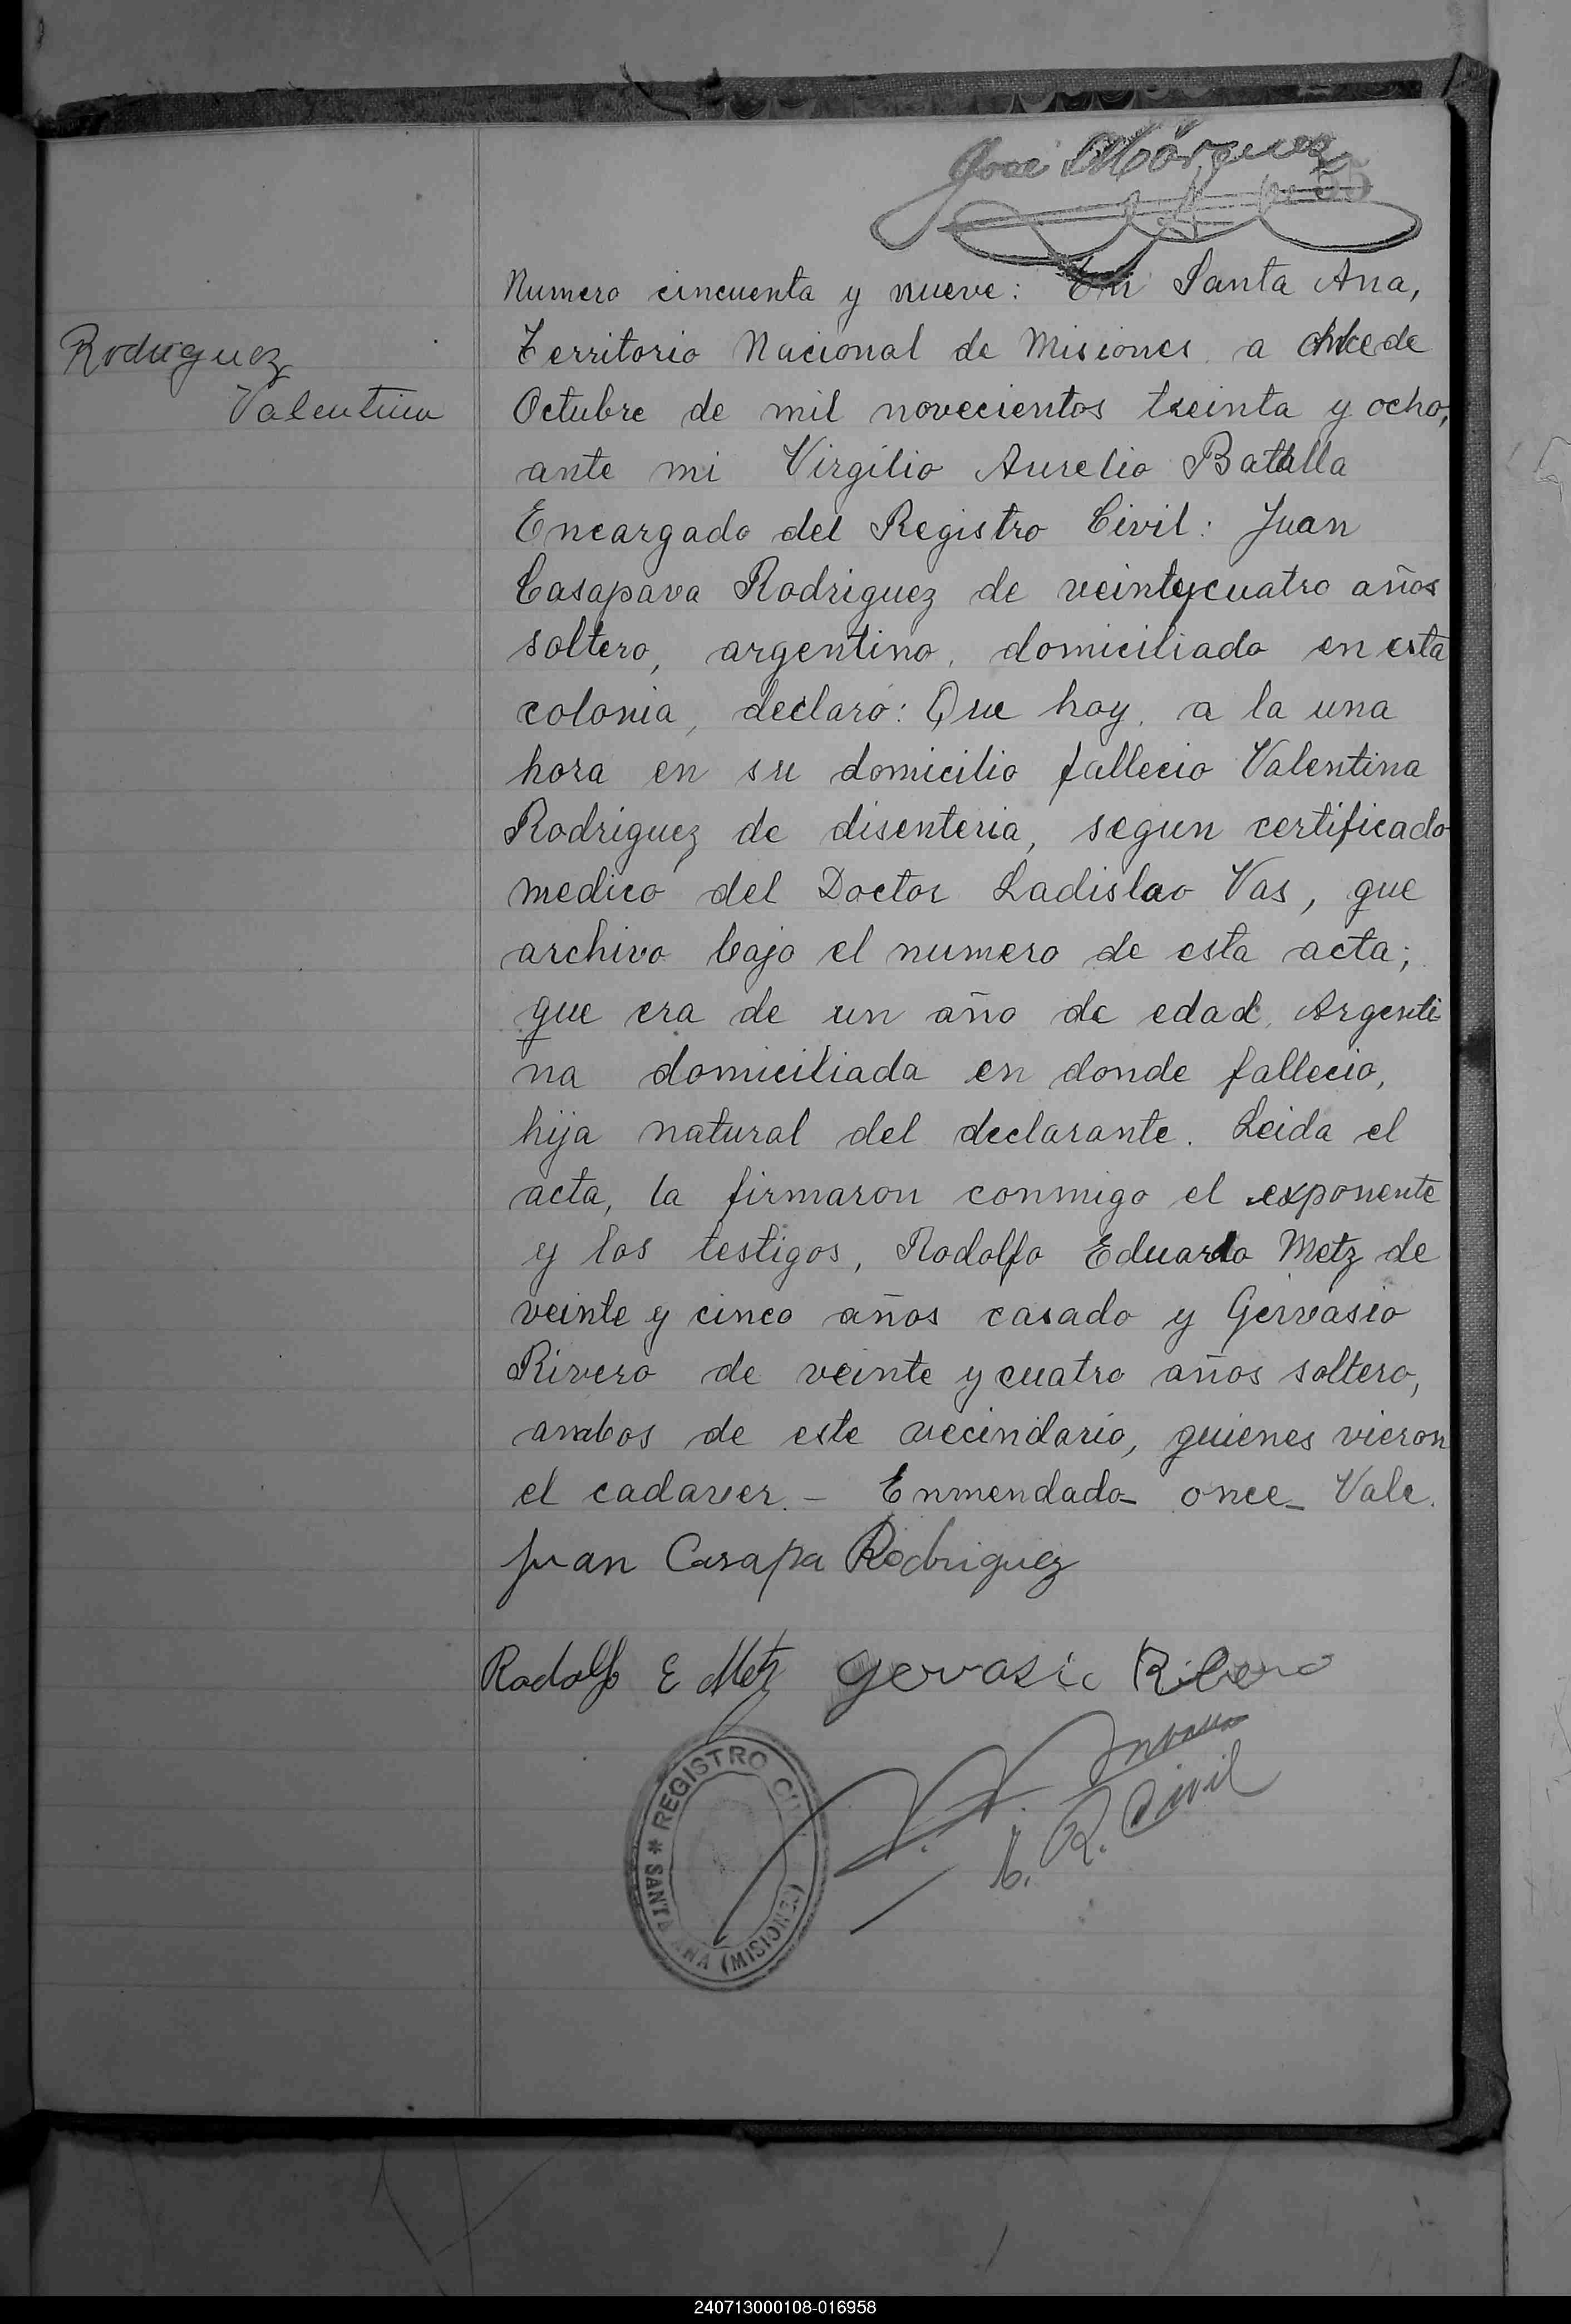 José Márquez
55
Rodriguez
Valentina
Numero cincuenta y nueve: En Santa Ana,
Territorio Nacional de Misiones a once de
Octubre de mil novecientos treinta y ocho,
ante mi Virgilio Aurelio Batalla
Encargado del Registro Civil: Juan
Casapava Rodriguez de veinteycuatro años
soltero, argentino, domiciliado en esta
colonia, declaró: Que hoy, a la una
hora en su domicilio fallecio Valentina
Rodriguez de disenteria, segun certificado
medico del Doctor Ladislao Vas, que
archivo bajo el numero de esta acta;
que era de un año de edad, Argenti-
na domiciliada en donde fallecio,
hija natural del declarante. Leida el
acta, la firmaron conmigo el exponente
y los testigos, Rodolfo Eduardo Metz de
veinte y cinco años casado y Gervasio
Rivero de veinte y cuatro años soltero,
ambos de este vecindario, quienes vieron
el cadaver. - Enmendado - once - Vale.
Juan Casapa Rodriguez
Rodolfo E Metz Gervasio Ribero
E. R. Civil
* REGISTRO CIVIL
SANTA ANA (MISIONES)
240713000108-016958